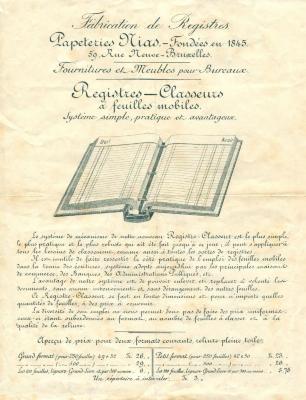 Fabrication de Registres.
Papeteries Nias.-Fondées en 1845.
59, Rue Neuve-Bruxelles.
Fournitures et Meubles pour Bureaux.
Registres-Classeurs
à feuilles mobiles.
Système simple, pratique et avantageux.
Doit Avoir
Le système de mécanisme de notre nouveau Registre-Classeur est le plus simple,
le plus pratique et le plus solide qui ait été fait jusqu'à ce jour; il peut s'appliquer à
tous les besoins de classement, comme aussi à toutes les sortes de registres.
Il est inutile de faire ressortir le côté pratique de l'emploi des feuilles mobiles
dans la tenue des écritures, système adopté aujourd'hui par les principales maisons
de commerce, des Banques, des Administrations Publiques, etc.
L'avantage de notre système est de pouvoir enlever et replacer à volonté les
documents, sans aucun inconvénient, et sans dérangement des autres feuilles.
Ce Registre-Classeur se fait en toutes dimensions et pour n'importe quelles
quantités de feuilles, à des prix à convenir.
La diversité de son emploi ne nous permet donc pas de faire des prix uniformes;
ceux-ci étant subordonnés au format, au nombre de feuilles à classer et à la
qualité de la reliure.
Aperçu de prix pour deux formats courants, reliure pleine toile:
Grand format (pour 250 feuilles) Fr. 26,
Petit format (pour 250 feuilles) Fr. 23,